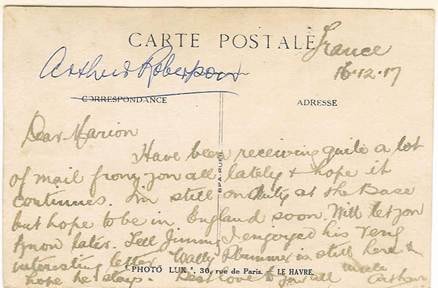 CARTE POSTALE
France
16-12-17
Arthur Roberson
CORRESPONDANCE
ADRESSE
Dear Marion
Have been receiving quite a lot
of mail from you all lately & hope it
continues. Im still on duty at the Base
but hope to be in England soon. Will let you
know later. Tell Jimmy I enjoyed his very
interesting letter. Wally Plummer is still here &
hope he stays. Best love to you all
Arthur
PHOTO LUX, 30, rue de Paris. LE HAVRE.